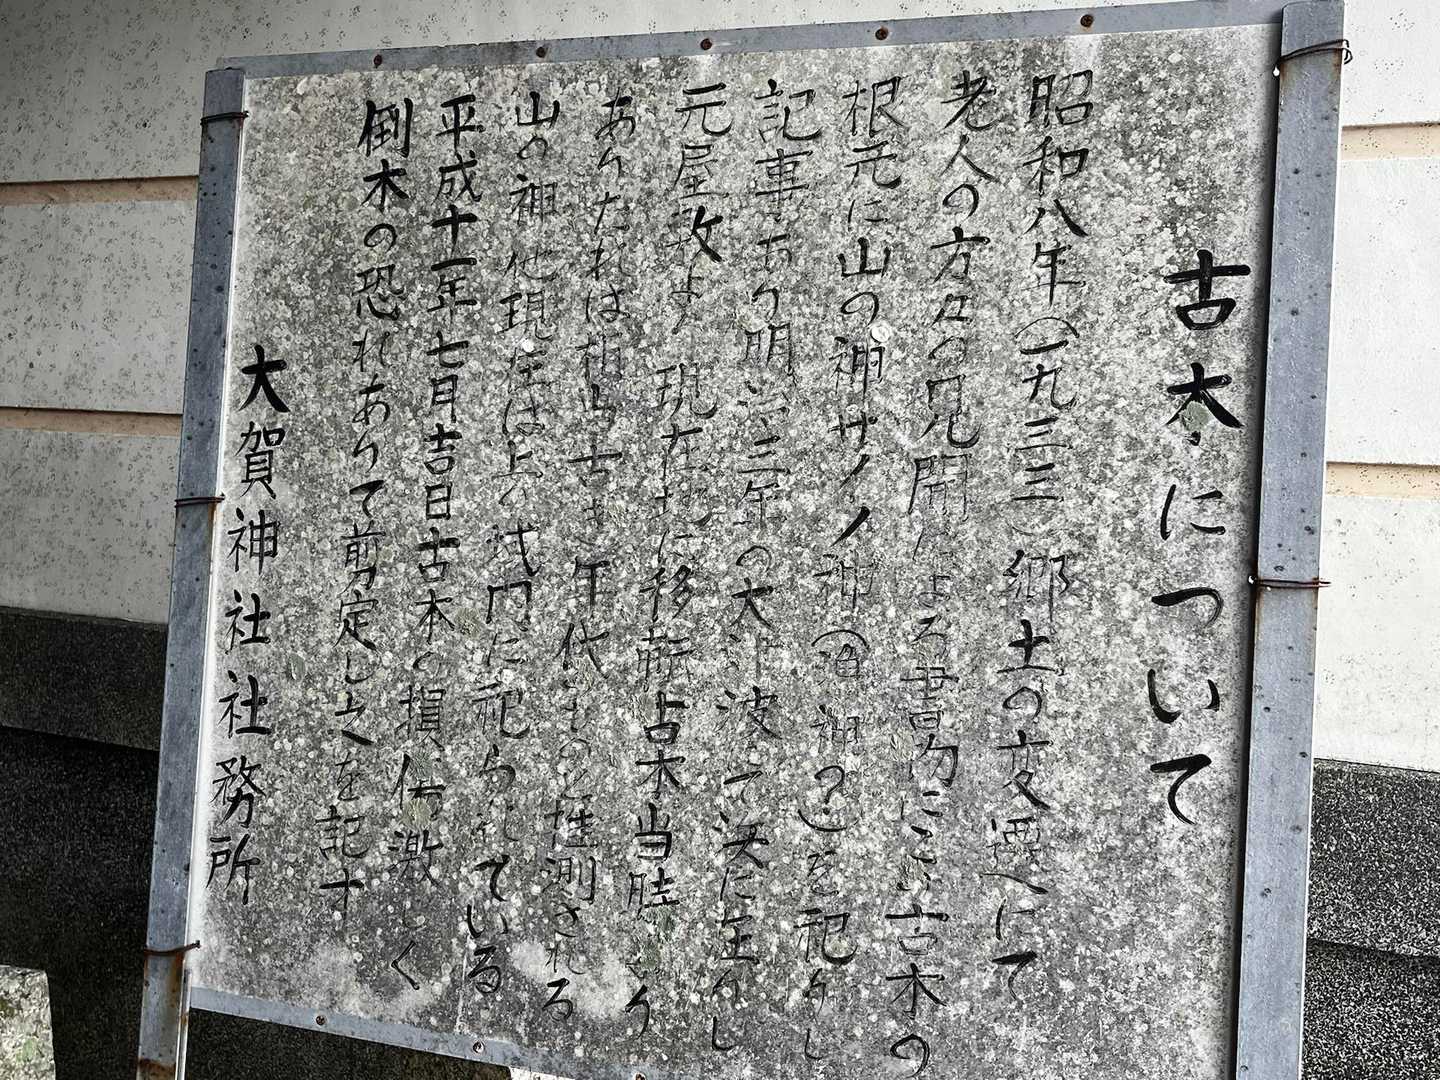 古木について
昭和八年(一九三三)郷土の変遷へにて
老人の方々の見聞による書物にこの古木の
根元に山の神サイノ神(道祖神?)を祀りし
記事あり明治三年の大津波て決に至りし
元屋敷より現在地に移転古木当時より
ありたれば相当古き年代ものと推測される
山の神他現在は上の城内に祀られている
平成十一年七月吉日古木の損傷激しく
倒木の恐れありて剪定し之を記す
大賀神社社務所